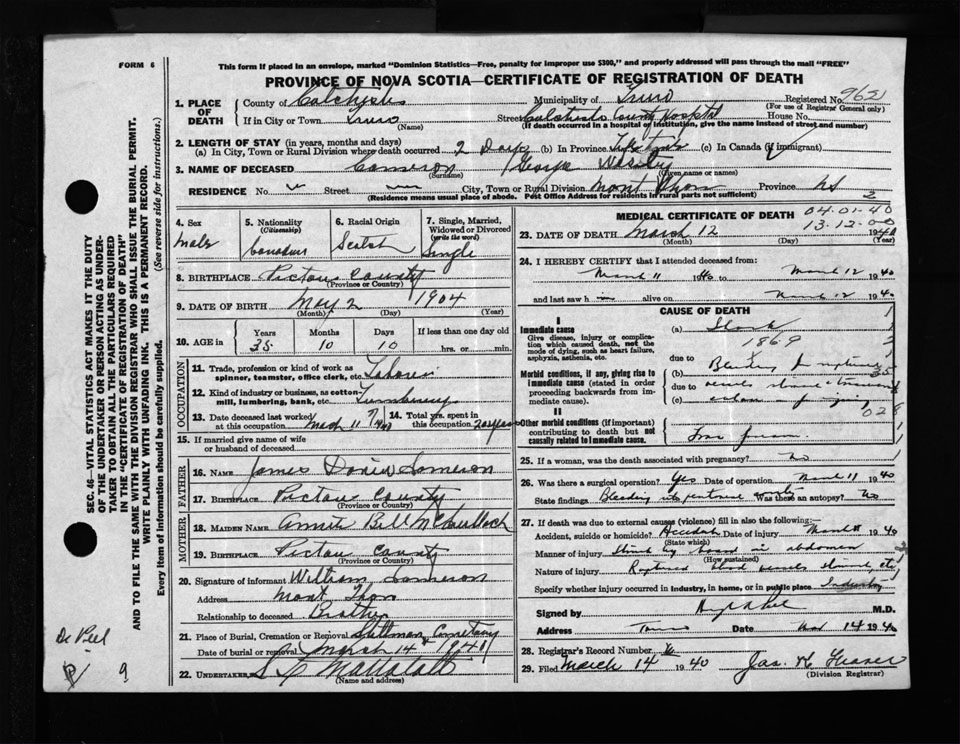 FORM 6
This form if placed in an envelope, marked "Dominion Statistics—Free, penalty for improper use $300," and properly addressed will pass through the mail "FREE"
PROVINCE OF NOVA SCOTIA—CERTIFICATE OF REGISTRATION OF DEATH
1. PLACE OF DEATH
County of Colchester Municipality of Truro Registered No. 962
(For use of Registrar General only)
If in City or Town Truro Street Colchester County Hospital House No.
(Name) (If death occurred in a hospital or institution, give the name instead of street and number)
2. LENGTH OF STAY (in years, months and days)
(a) In City, Town or Rural Division where death occurred 2 Days (b) In Province Life time (c) In Canada (if immigrant)
3. NAME OF DECEASED Cameron George
(Surname) (Given name or names)
RESIDENCE No. Street City, Town or Rural Division Mont Thom Province NS
(Residence means usual place of abode. Post Office Address for residents in rural parts not sufficient) 2
4. Sex
Male
5. Nationality
(Citizenship)
Canadian
6. Racial Origin
Scotch
7. Single, Married, Widowed or Divorced
(write the word)
Single
8. BIRTHPLACE Pictou County
(Province or Country)
9. DATE OF BIRTH May 2 1904
(Month) (Day) (Year)
10. AGE in
Years Months Days If less than one day old
35 10 10 hrs. or min.
OCCUPATION
11. Trade, profession or kind of work as spinner, teamster, office clerk, etc. Laborer
12. Kind of industry or business, as cotton-mill, lumbering, bank, etc. Lumbering
13. Date deceased last worked at this occupation March 11
14. Total yrs. spent in this occupation 20 years
15. If married give name of wife or husband of deceased
FATHER
16. NAME James Cameron
17. BIRTHPLACE Pictou County
(Province or Country)
MOTHER
18. MAIDEN NAME Annie Bell McCulloch
19. BIRTHPLACE Pictou County
(Province or Country)
20. Signature of informant William Cameron
Address Mont Thom
Relationship to deceased Brother
21. Place of Burial, Cremation or Removal Stillman Cemetery
Date of burial or removal March 14 1940
22. UNDERTAKER
(Name and address)
MEDICAL CERTIFICATE OF DEATH
04-01-40
13-12-00
23. DATE OF DEATH March 12 1940
(Month) (Day) (Year)
24. I HEREBY CERTIFY that I attended deceased from:
March 11 1940 to March 12 1940
and last saw him alive on March 12 1940
CAUSE OF DEATH
I
Immediate cause
Give disease, injury or complication which caused death, not the mode of dying, such as heart failure, asphyxia, asthenia, etc.
(a) Shock
1869
due to
Morbid conditions, if any, giving rise to immediate cause (stated in order proceeding backwards from immediate cause).
(b) Bleeding from ruptured
due to vessels
(c)
II
Other morbid conditions (if important) contributing to death but not causally related to immediate cause.
25. If a woman, was the death associated with pregnancy? No
26. Was there a surgical operation? Yes Date of operation March 11 1940
State findings Bleeding into peritoneal cavity Was there an autopsy? No
27. If death was due to external causes (violence) fill in also the following:—
Accident, suicide or homicide? Accident Date of injury March 11 1940
(State which)
Manner of injury Struck by board in abdomen
(How sustained)
Nature of injury Ruptured blood vessels
Specify whether injury occurred in industry, in home, or in public place Industry
Signed by M.D.
Address Truro Date Mar 14 1940
28. Registrar's Record Number
29. Filed March 14 1940 Jas.
(Division Registrar)
SEC. 46—VITAL STATISTICS ACT MAKES IT THE DUTY OF THE UNDERTAKER OR PERSON ACTING AS UNDERTAKER TO OBTAIN ALL THE PARTICULARS REQUIRED IN THE "CERTIFICATE OF REGISTRATION OF DEATH"
AND TO FILE THE SAME WITH THE DIVISION REGISTRAR WHO SHALL ISSUE THE BURIAL PERMIT.
WRITE PLAINLY WITH UNFADING INK. THIS IS A PERMANENT RECORD.
Every item of information should be carefully supplied. (See reverse side for instructions.)
9